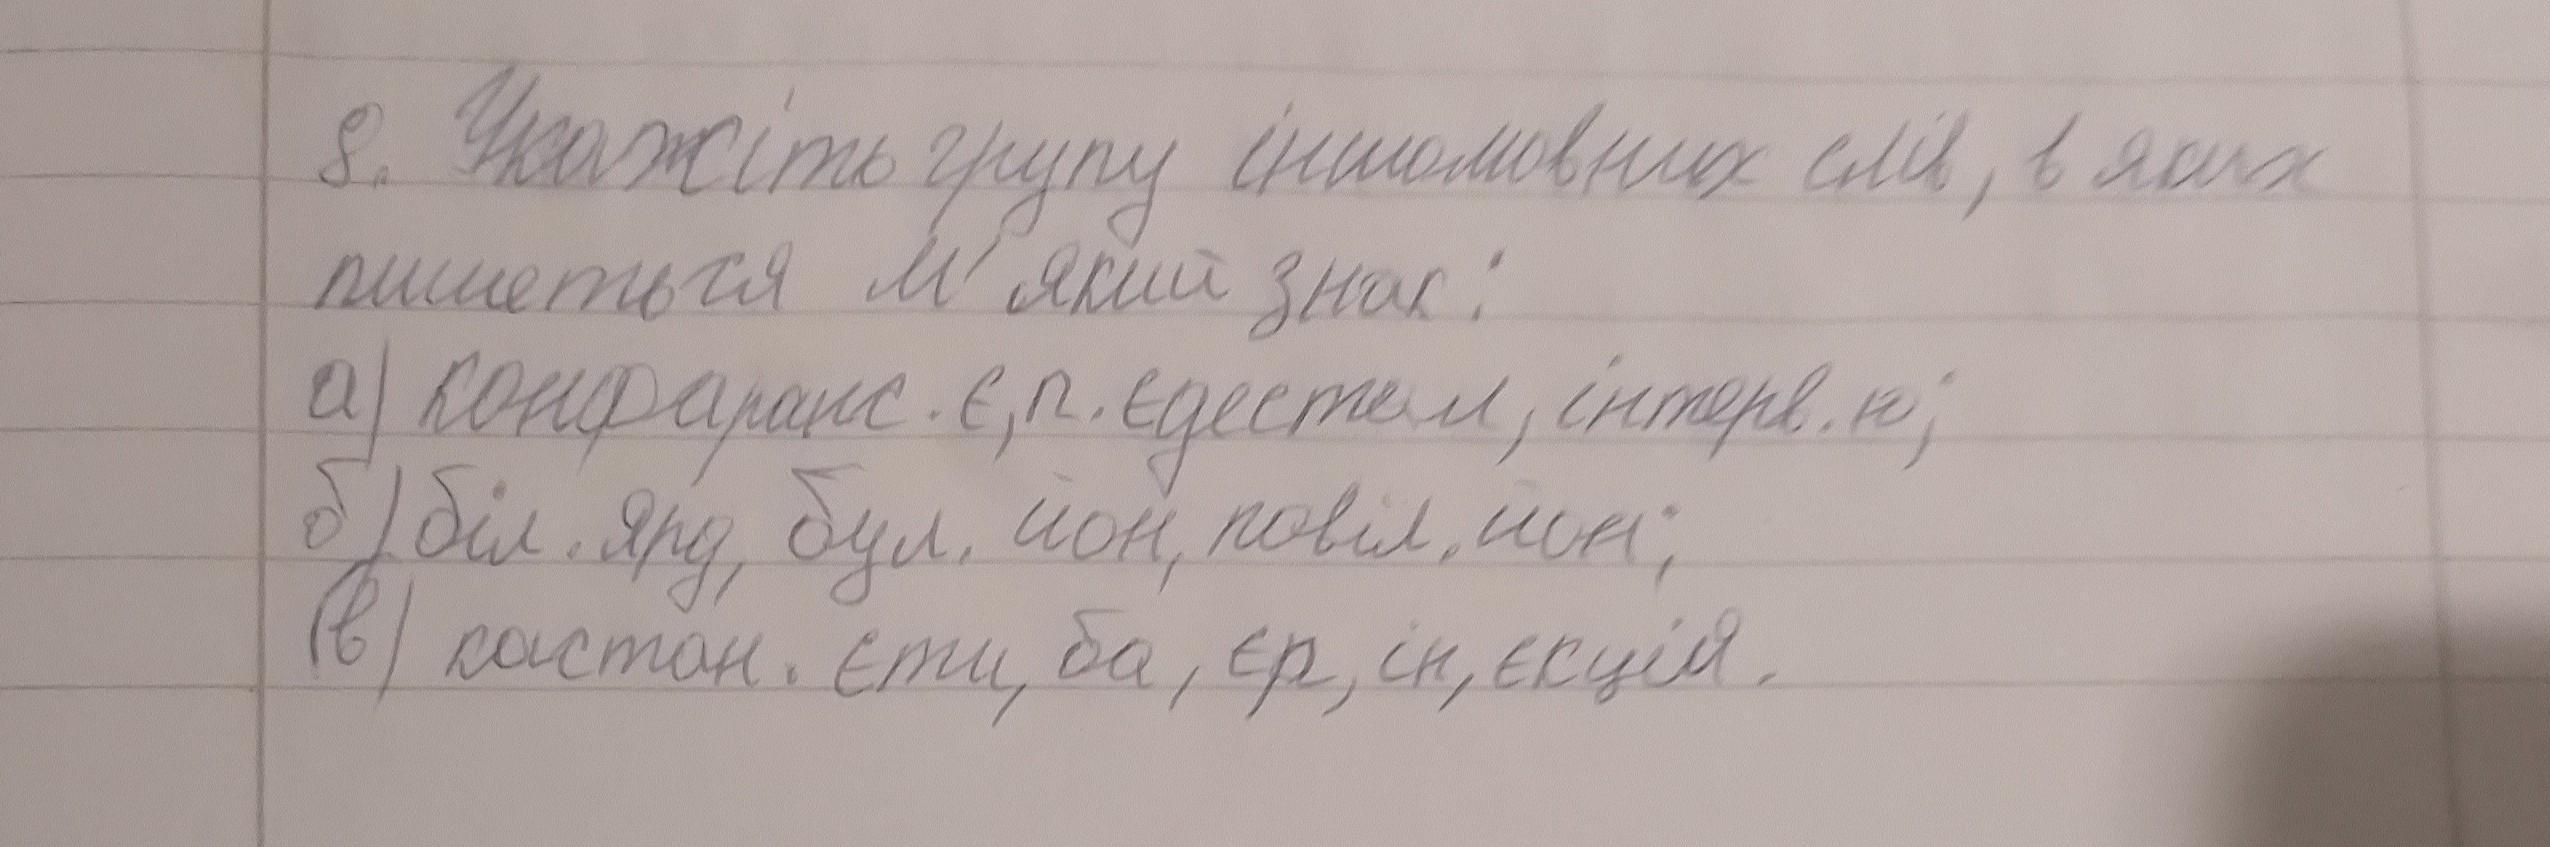 8. Укажіть групу іншомовних слів, в яких
пишеться м'який знак:
а) конфаранс.є, п.єдестал, інтерв.ю;
б) біл.ярд, бул.йон, павіл.йон;
в) кастан.єти, ба,єр, ін,єкція.